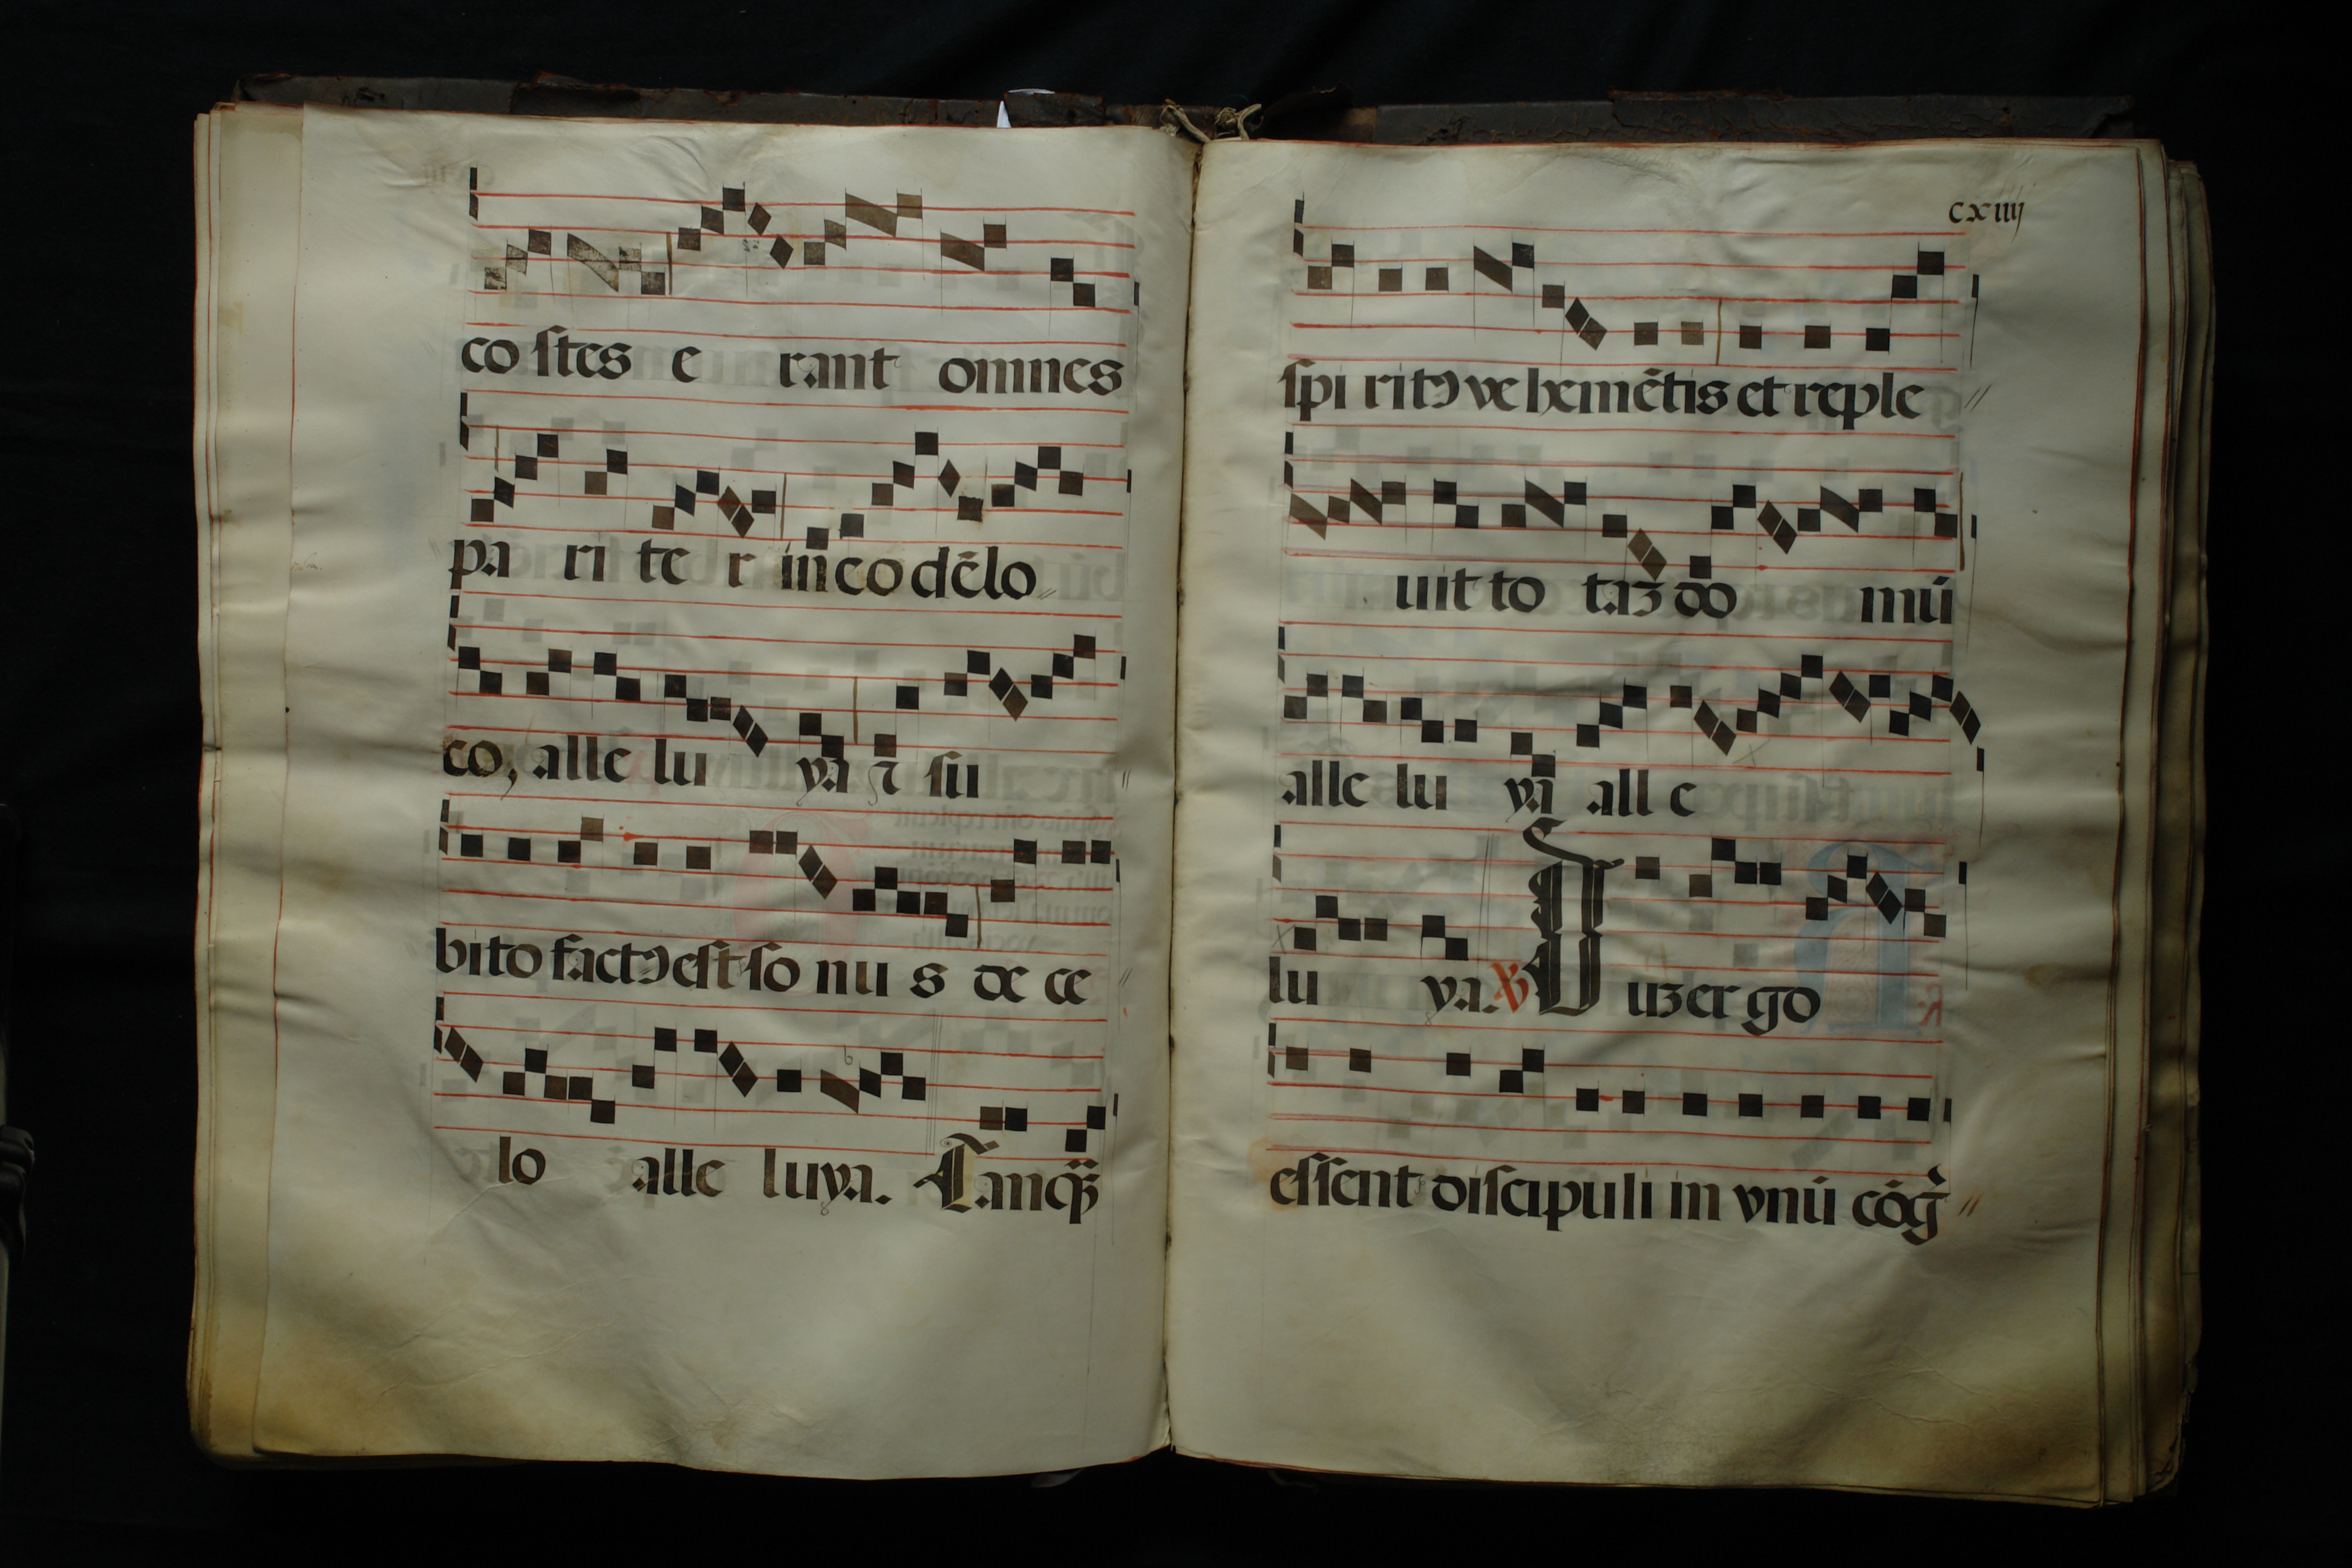 co stes e rant omnes
pa ri te r in eo dē lo
co, alle lu ya ⁊ su
bito factꝰ est so nu s de ce
lo alle luya. Tanqȝ
cxiiij
spi ritꝰ ve hemētis et reple
uit to taȝ do mū
alle lu ya all e
lu ya. ℣ Duȝ er go
essent discipuli in vnū cōg̃